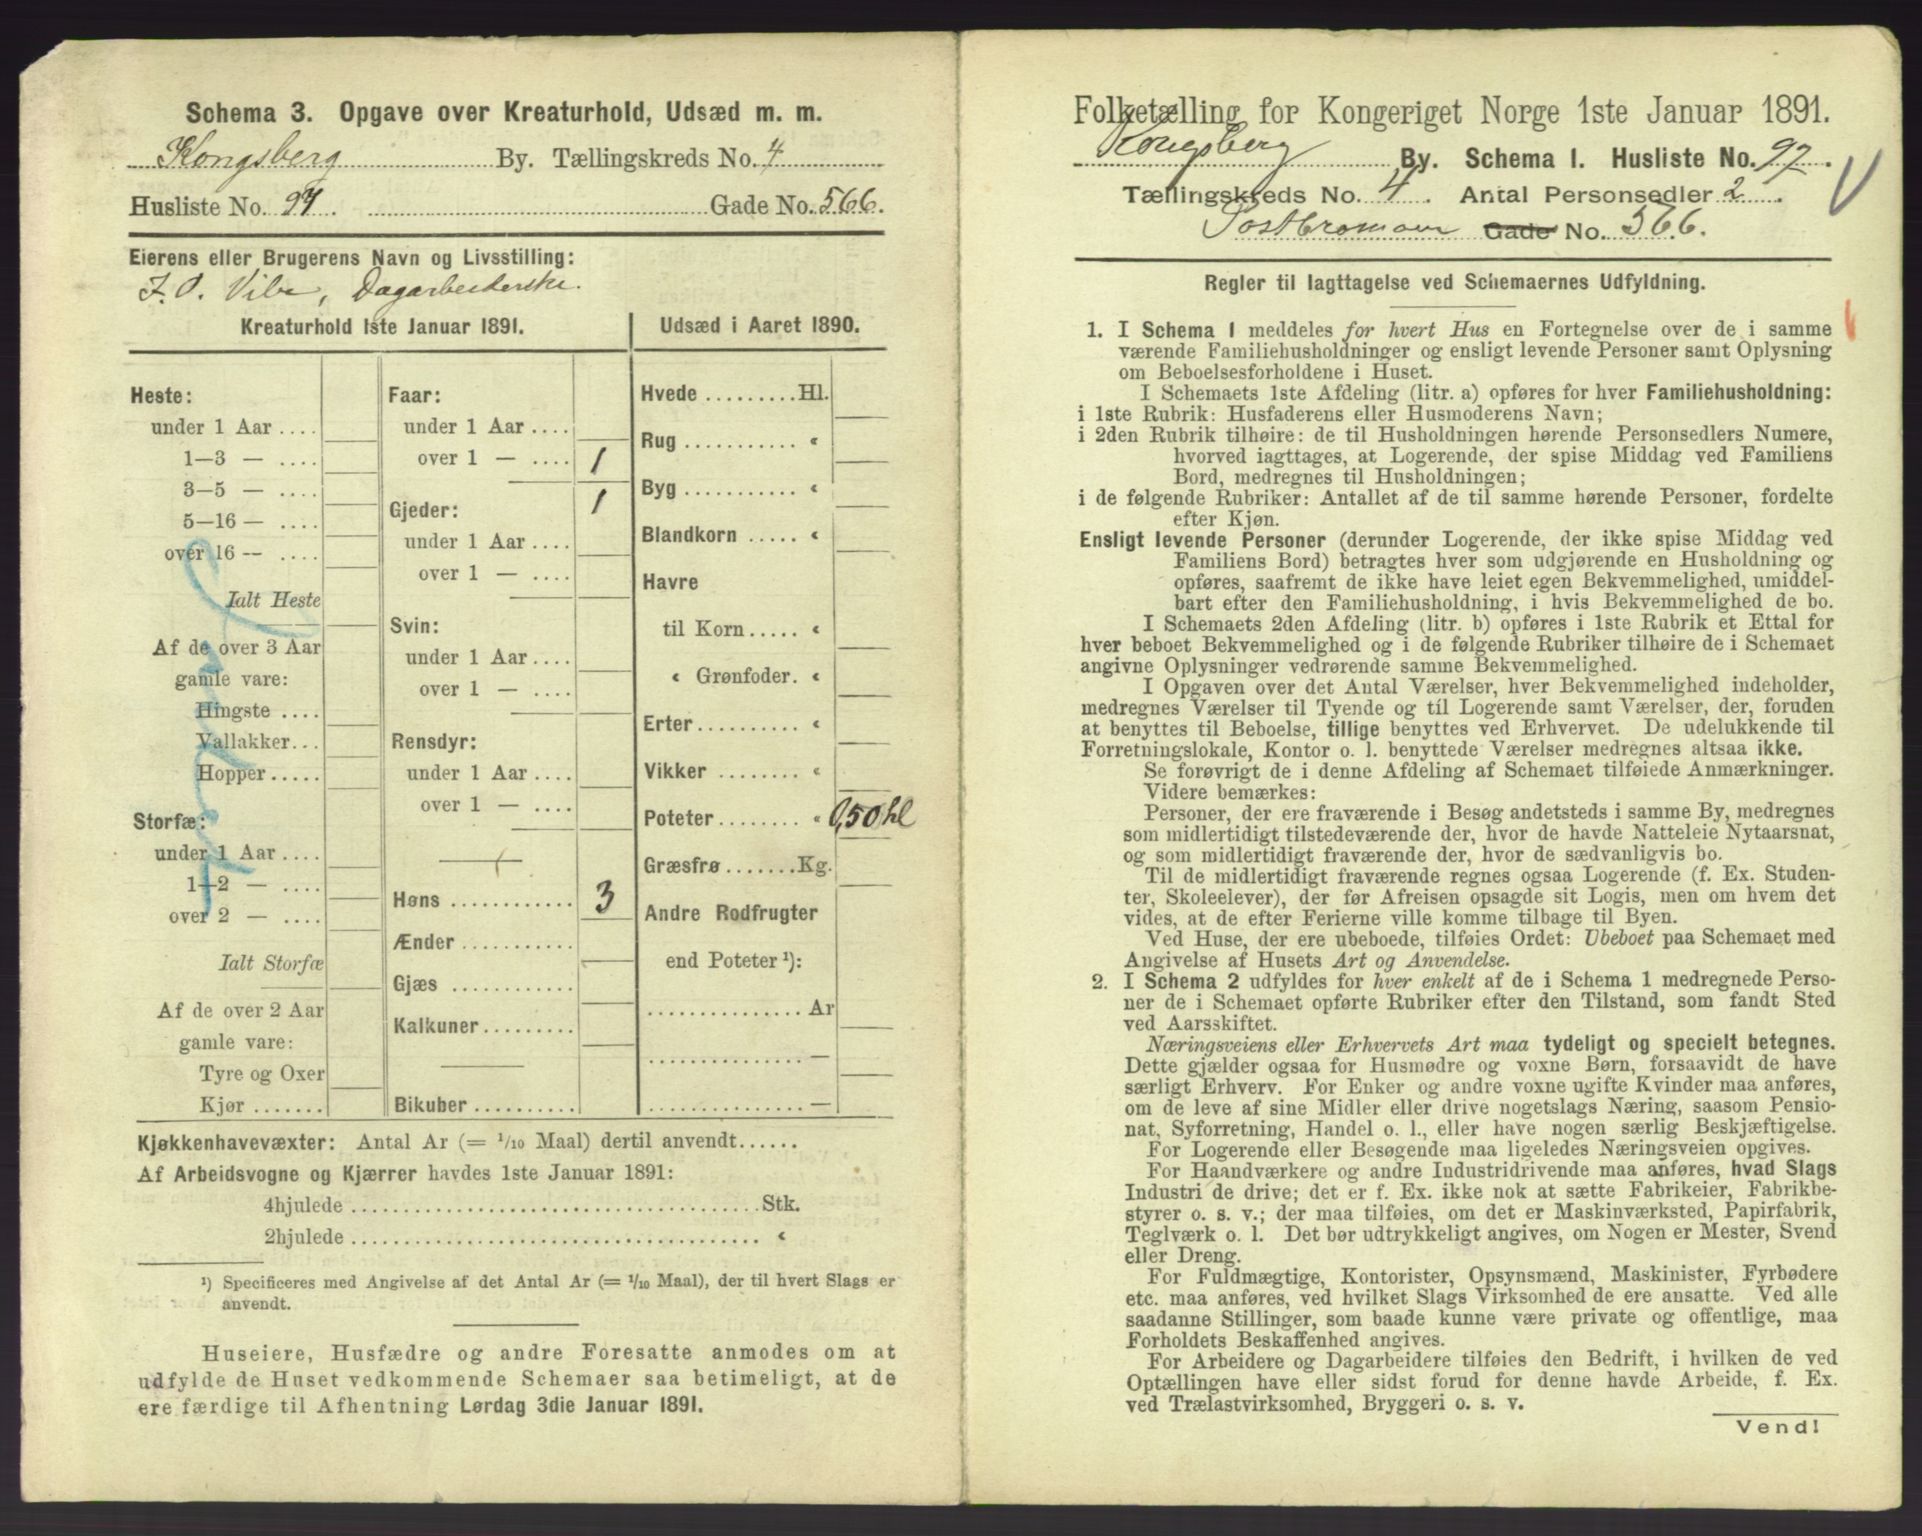 Schema 3. Opgave over Kreaturhold, Udsæd m. m.
Kongsberg By. Tællingskreds No. 4
Husliste No. 97. Gade No. 566.
Eierens eller Brugerens Navn og Livsstilling:
J. O. Vibe, Dagarbeiderske.
Kreaturhold 1ste Januar 1891.
Heste:
under 1 Aar ....
1—3 — ....
3—5 — ....
5—16 — ....
over 16 — ....
Ialt Heste
Af de over 3 Aar
gamle vare:
Hingste ....
Vallakker...
Hopper.....
Storfæ:
under 1 Aar ....
1—2 — ....
over 2 — ....
Ialt Storfæ
Af de over 2 Aar
gamle vare:
Tyre og Oxer
Kjør .......
Faar:
under 1 Aar ....
over 1 — .... 1
Gjeder: 1
under 1 Aar ....
over 1 — ....
Svin:
under 1 Aar ....
over 1 — ....
Rensdyr:
under 1 Aar ....
over 1 — ....
Høns ............ 3
Ænder ...........
Gjæs ............
Kalkuner.........
Bikuber ..........
Udsæd i Aaret 1890.
Hvede .........Hl.
Rug ........... "
Byg ........... "
Blandkorn ..... "
Havre
til Korn..... "
" Grønfoder. "
Erter.......... "
Vikker ........ "
Poteter........ " 0,50 hl
Græsfrø.......Kg.
Andre Rodfrugter
end Poteter ¹):
............... Ar
............... —
............... —
Kjøkkenhavevæxter: Antal Ar (= 1/10 Maal) dertil anvendt......
Af Arbeidsvogne og Kjærrer havdes 1ste Januar 1891:
4hjulede ......................................Stk.
2hjulede ...................................... "
¹) Specificeres med Angivelse af det Antal Ar (= 1/10 Maal), der til hvert Slags er
anvendt.
Huseiere, Husfædre og andre Foresatte anmodes om at
udfylde de Huset vedkommende Schemaer saa betimeligt, at de
ere færdige til Afhentning Lørdag 3die Januar 1891.
Folketælling for Kongeriget Norge 1ste Januar 1891.
Kongsberg By. Schema 1. Husliste No. 97.
Tællingskreds No. 4. Antal Personsedler 2.
Gade No. 566.
Regler til Iagttagelse ved Schemaernes Udfyldning.
1. I Schema 1 meddeles for hvert Hus en Fortegnelse over de i samme
værende Familiehusholdninger og ensligt levende Personer samt Oplysning
om Beboelsesforholdene i Huset.
I Schemaets 1ste Afdeling (litr. a) opføres for hver Familiehusholdning:
i 1ste Rubrik: Husfaderens eller Husmoderens Navn;
i 2den Rubrik tilhøire: de til Husholdningen hørende Personsedlers Numere,
hvorved iagttages, at Logerende, der spise Middag ved Familiens
Bord, medregnes til Husholdningen;
i de følgende Rubriker: Antallet af de til samme hørende Personer, fordelte
efter Kjøn.
Ensligt levende Personer (derunder Logerende, der ikke spise Middag ved
Familiens Bord) betragtes hver som udgjørende en Husholdning og
opføres, saafremt de ikke have leiet egen Bekvemmelighed, umiddel-
bart efter den Familiehusholdning, i hvis Bekvemmelighed de bo.
I Schemaets 2den Afdeling (litr. b) opføres i 1ste Rubrik et Ettal for
hver beboet Bekvemmelighed og i de følgende Rubriker tilhøire de i Schemaet
angivne Oplysninger vedrørende samme Bekvemmelighed.
I Opgaven over det Antal Værelser, hver Bekvemmelighed indeholder,
medregnes Værelser til Tyende og til Logerende samt Værelser, der, foruden
at benyttes til Beboelse, tillige benyttes ved Erhvervet. De udelukkende til
Forretningslokale, Kontor o. l. benyttede Værelser medregnes altsaa ikke.
Se forøvrigt de i denne Afdeling af Schemaet tilføiede Anmærkninger.
Videre bemærkes:
Personer, der ere fraværende i Besøg andetsteds i samme By, medregnes
som midlertidigt tilstedeværende der, hvor de havde Natteleie Nytaarsnat,
og som midlertidigt fraværende der, hvor de sædvanligvis bo.
Til de midlertidigt fraværende regnes ogsaa Logerende (f. Ex. Studen-
ter, Skoleelever), der før Afreisen opsagde sit Logis, men om hvem det
vides, at de efter Ferierne ville komme tilbage til Byen.
Ved Huse, der ere ubeboede, tilføies Ordet: Ubeboet paa Schemaet med
Angivelse af Husets Art og Anvendelse.
2. I Schema 2 udfyldes for hver enkelt af de i Schema 1 medregnede Perso-
ner de i Schemaet opførte Rubriker efter den Tilstand, som fandt Sted
ved Aarsskiftet.
Næringsveiens eller Erhvervets Art maa tydeligt og specielt betegnes.
Dette gjælder ogsaa for Husmødre og voxne Børn, forsaavidt de have
særligt Erhverv. For Enker og andre voxne ugifte Kvinder maa anføres,
om de leve af sine Midler eller drive nogetslags Næring, saasom Pensio-
nat, Syforretning, Handel o. l., eller have nogen særlig Beskjæftigelse.
For Logerende eller Besøgende maa ligeledes Næringsveien opgives.
For Haandværkere og andre Industridrivende maa anføres, hvad Slags
Industri de drive; det er f. Ex. ikke nok at sætte Fabrikeier, Fabrikbe-
styrer o. s. v.; der maa tilføies, om det er Maskinværksted, Papirfabrik,
Teglværk o. l. Det bør udtrykkeligt angives, om Nogen er Mester, Svend
eller Dreng.
For Fuldmægtige, Kontorister, Opsynsmænd, Maskinister, Fyrbødere
etc. maa anføres, ved hvilket Slags Virksomhed de ere ansatte. Ved alle
saadanne Stillinger, som baade kunne være private og offentlige, maa
Forholdets Beskaffenhed angives.
For Arbeidere og Dagarbeidere tilføies den Bedrift, i hvilken de ved
Optællingen have eller sidst forud for denne havde Arbeide, f. Ex.
ved Trælastvirksomhed, Bryggeri o. s. v.
Vend!